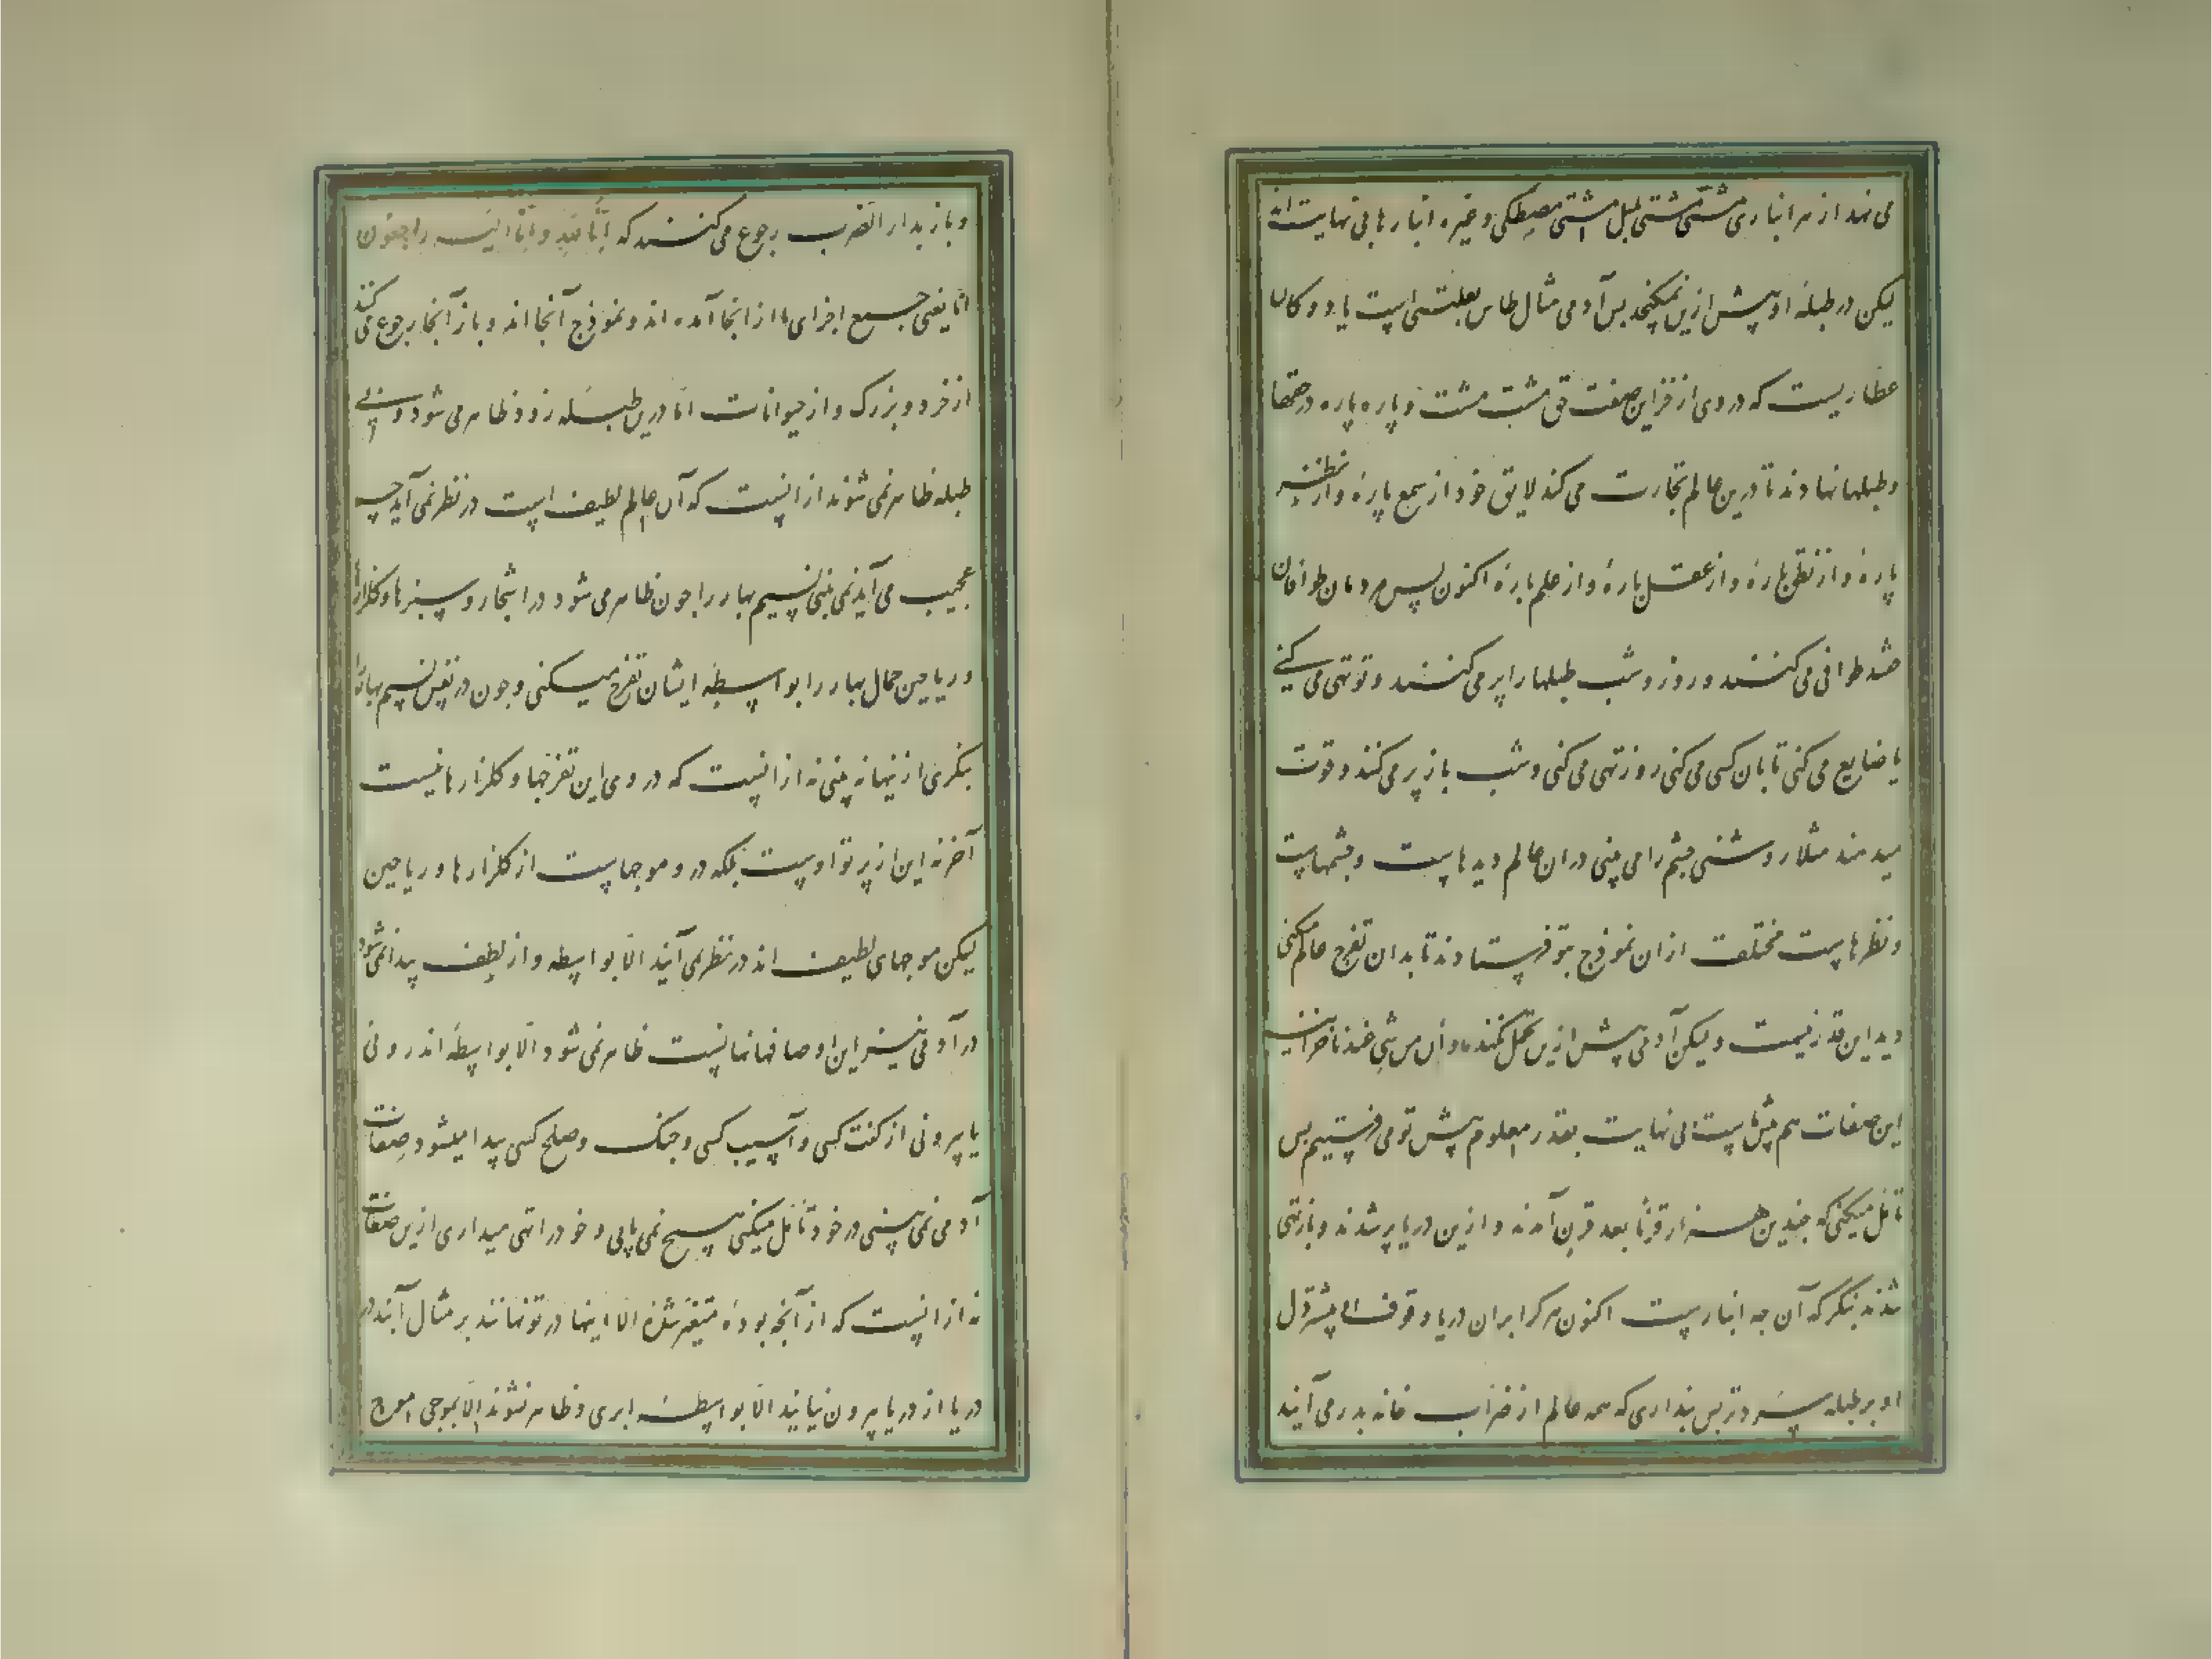 می نهد از هر انباری مشتی مشتی پلپل مشتی مصطکی و غیره انبارها بی نهایت اند
لیکن در طبلهٔ او بیش ازین نمیکنجد بس آدمی مثال طاس بعلتنی است یا دوکان
عطاریست که در وی از خزاین صفت حق مشت مشت و پاره پاره در حقها
و طبلها نهادند تا درین عالم تجارت می کند لایق خود از سمع پارهٔ و از نظر
پارهٔ و از نطق پارهٔ و از عقل پارهٔ و از علم پارهٔ اکنون پس مردمان طوافان
حقند طوافی می کنند و روز و شب طبلها را پر می کنند و تو تهی می کنی
یا ضایع می کنی تا بان کسی می کنی روز تهی می کنی و شب باز پر می کنند و قوت
میدهند مثلا روشنی چشم را می بینی دران عالم دیدهاست و چشمهاست
و نظرهاست مختلف ازان نموذج بتو فرستادند تا بدان تفرج عالم میکنی
دید این قدر نیست و لیکن آدمی بیش ازین تحمل نکند و ان من شیٔ عندنا خزائنه
این صفات هم پیش ماست بی نهایت بقدر معلوم پیش تو می فرستیم بس
تامل میکنی که چندین هزار قرنا بعد قرن آمدند و ازین دریا پر شدند و باز تهی
شدند بنگر که آن چه انبارست اکنون هر کرا بران دریا وقوف بیشتر دل
او بر طبله سردتر بس پنداری که همه عالم از ضراب خانه بدر می آیند
و باز بدار الضرب رجوع می کنند که انا لله و انا الیه راجعون
انا یعنی جمیع اجزای ما از انجا آمده اند و نموذج آنجااند و باز آنجا رجوع می کنند
از خرد و بزرک و از حیوانات اما درین طبله زود ظاهر می شود و بی
طبله ظاهر نمی شوند از انست که آن عالم لطیف است در نظر نمی آید چه
عجب می آید نمی بینی نسیم بهار را چون ظاهر می شود در اشجار و سبزها و گلزارها
و ریاحین جمال بهار را بواسطهٔ ایشان تفرج میکنی و چون در نفس نسیم بهار
بنگری ازینها نه بینی نه از انست که در وی این تفرجها و گلزارها نیست
آخر نه این از پرتو اوست بلکه درو موجهاست از گلزارها و ریاحین
لیکن موجهای لطیف اند در نظر نمی آیند الا بواسطه و از لطف پیدا نمی شود
در آدمی نیز این اوصاف نهانست ظاهر نمی شود الا بواسطهٔ اندرونی
یا بیرونی از کفت کسی و آسیب کسی و جنک و صلح کسی پیدا میشود صفات
آدمی نمی بینی در خود تامل میکنی هیچ نمی یابی و خود را تهی میداری ازین صفات
نه از انست که از آنچه بودهٔ متغیر شدهٔ الا اینها در تو نهانند بر مثال آبند در
دریا از دریا بیرون نیایند الا بواسطهٔ ابری و ظاهر نشوند الا بموجی موج